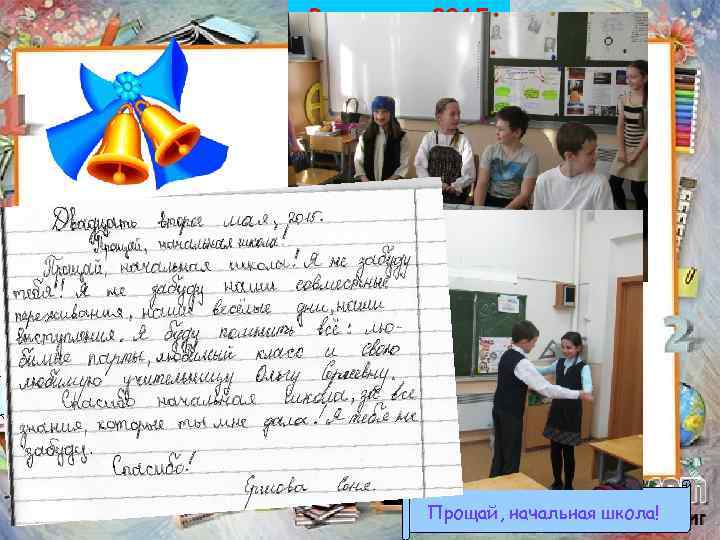 2015
Двадцать второе мая, 2015.
"Прощай, начальная школа!"
Прощай, начальная школа! Я не забуду
тебя!! Я не забуду наши совместные
переживания, наши весёлые дни, наши
выступления. Я буду помнить всё: лю-
бимые парты, любимый класс и свою
любимую учительницу Ольгу Сергеевну.
Спасибо начальная школа, за все
знания, которые ты мне дала! Я тебя не
забуду.
Спасибо!
Соня.
Прощай, начальная школа!